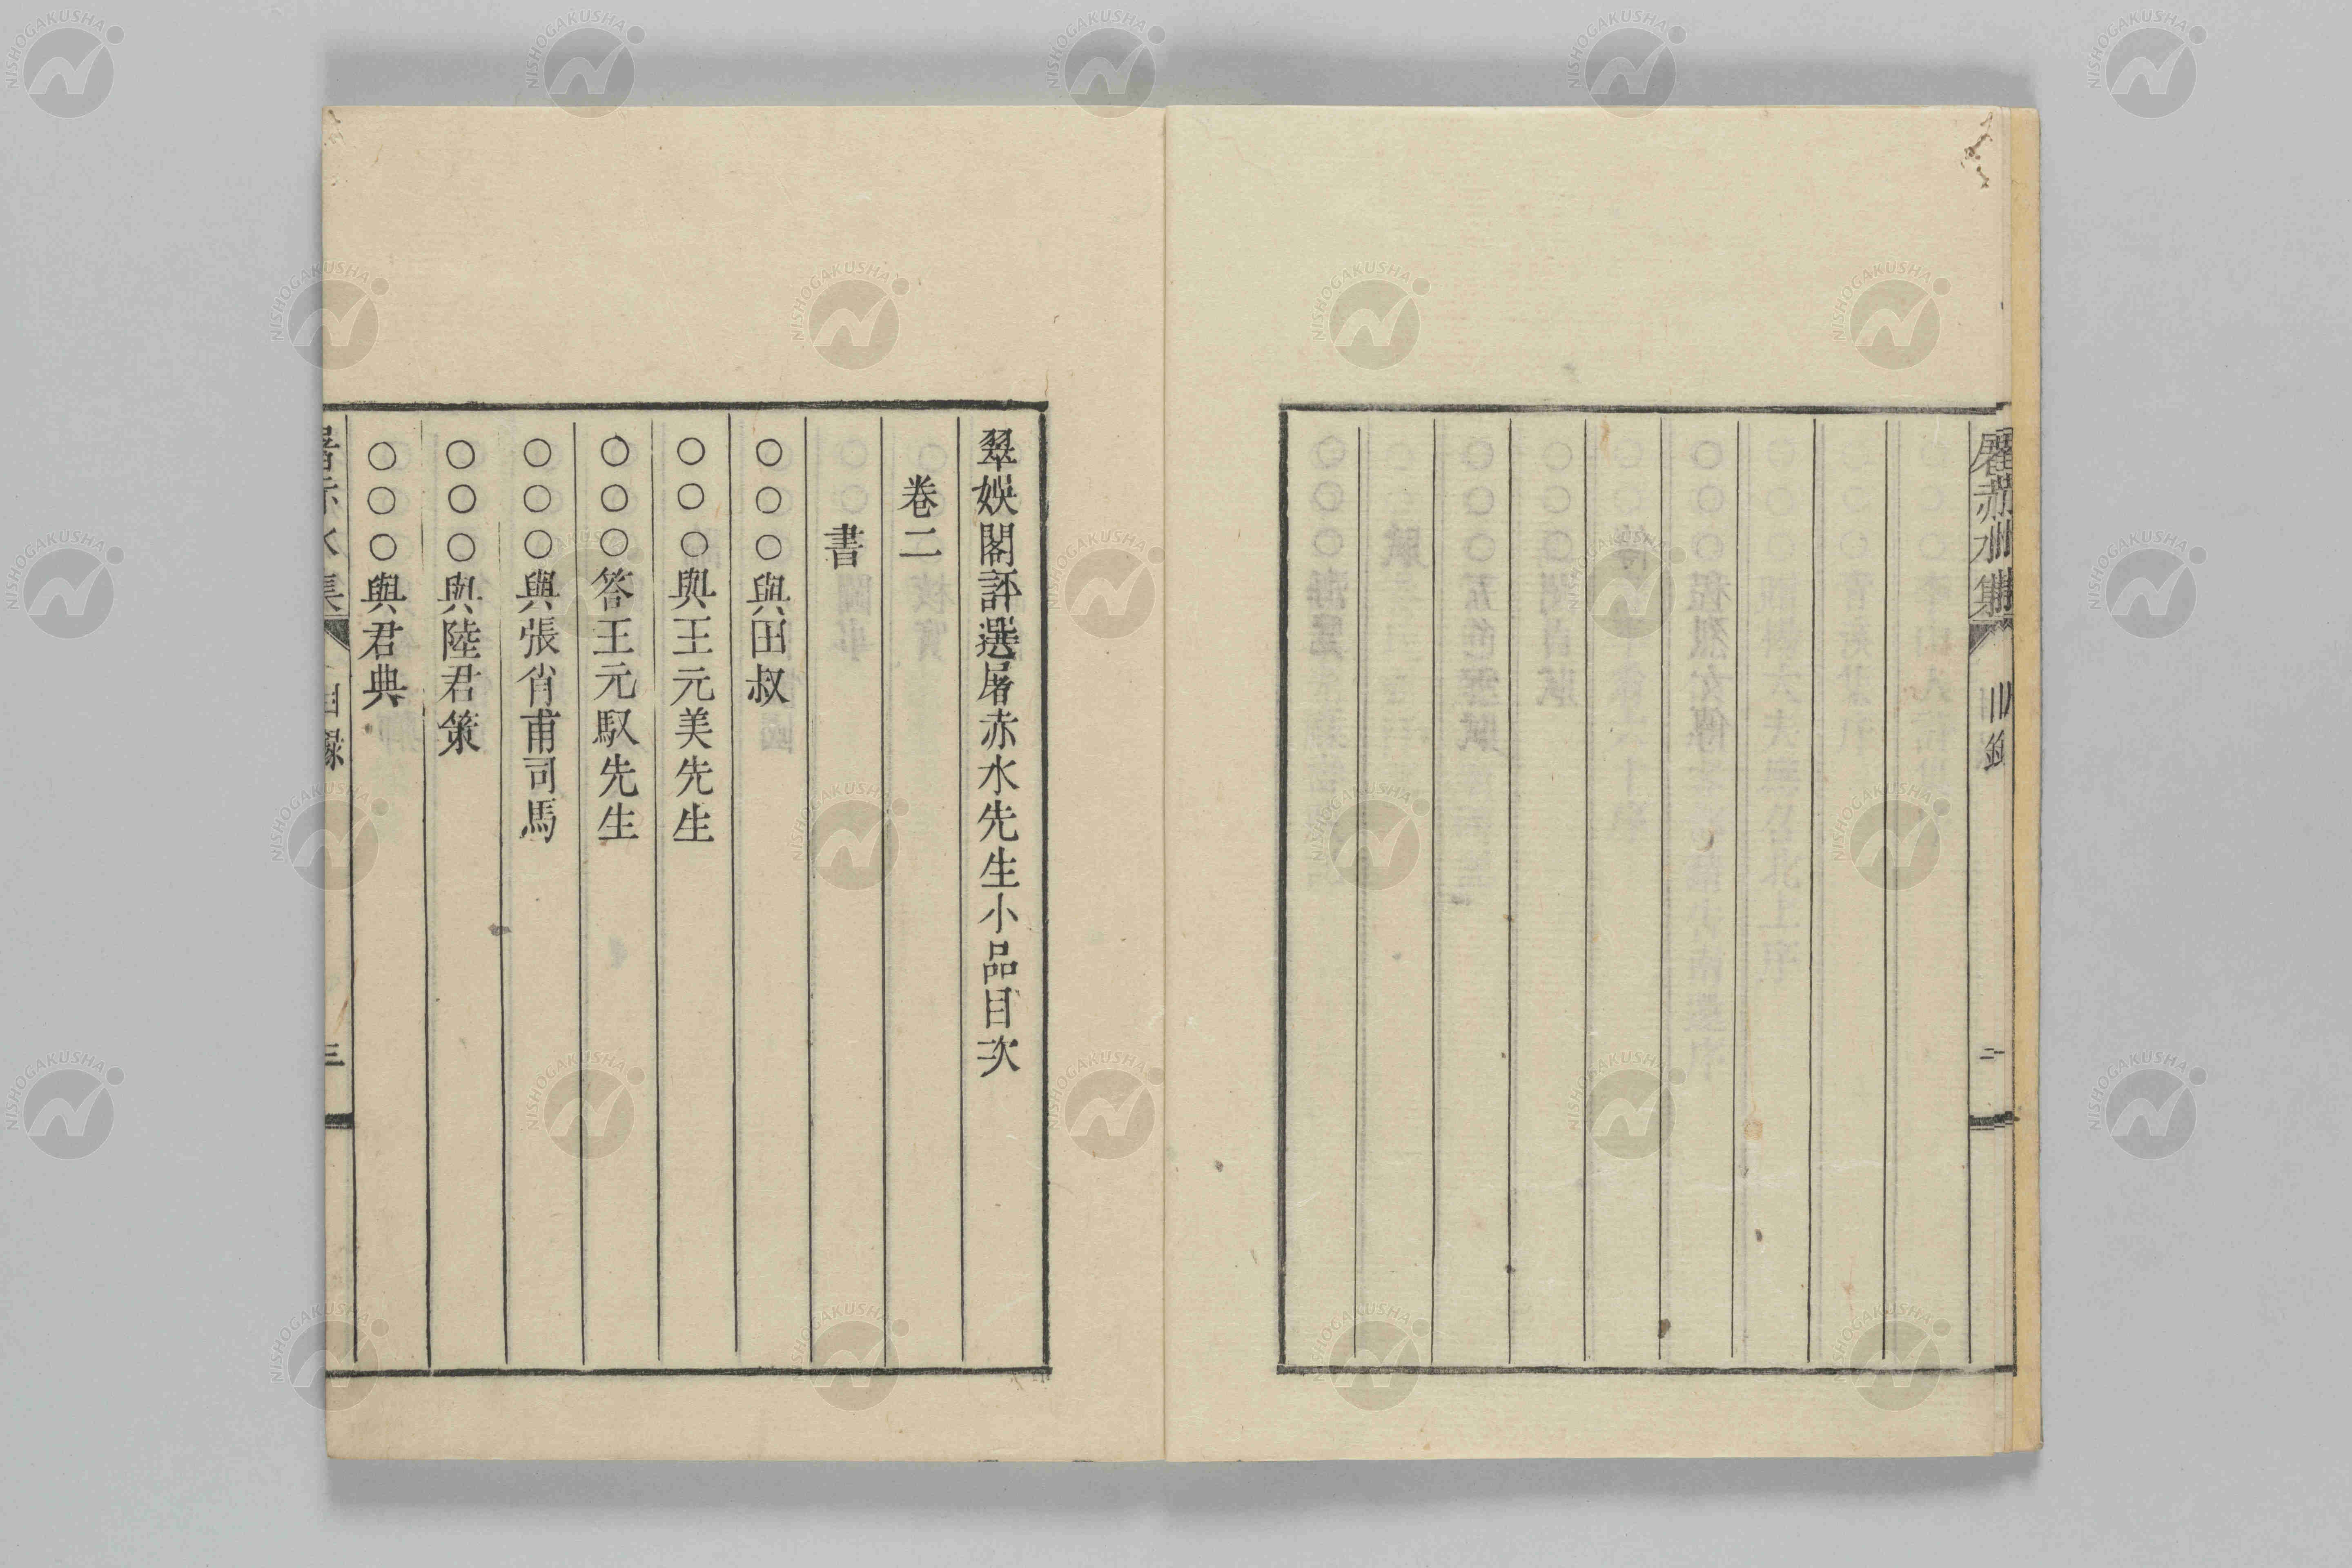 屠赤水集
目錄
二
翠娛閣評選屠赤水先生小品目次
卷二
書
○○○與田叔
○○○與王元美先生
○○○答王元馭先生
○○○與張肖甫司馬
○○○與陸君策
○○○與君典
屠赤水集
目錄
三
NISHOGAKUSHA